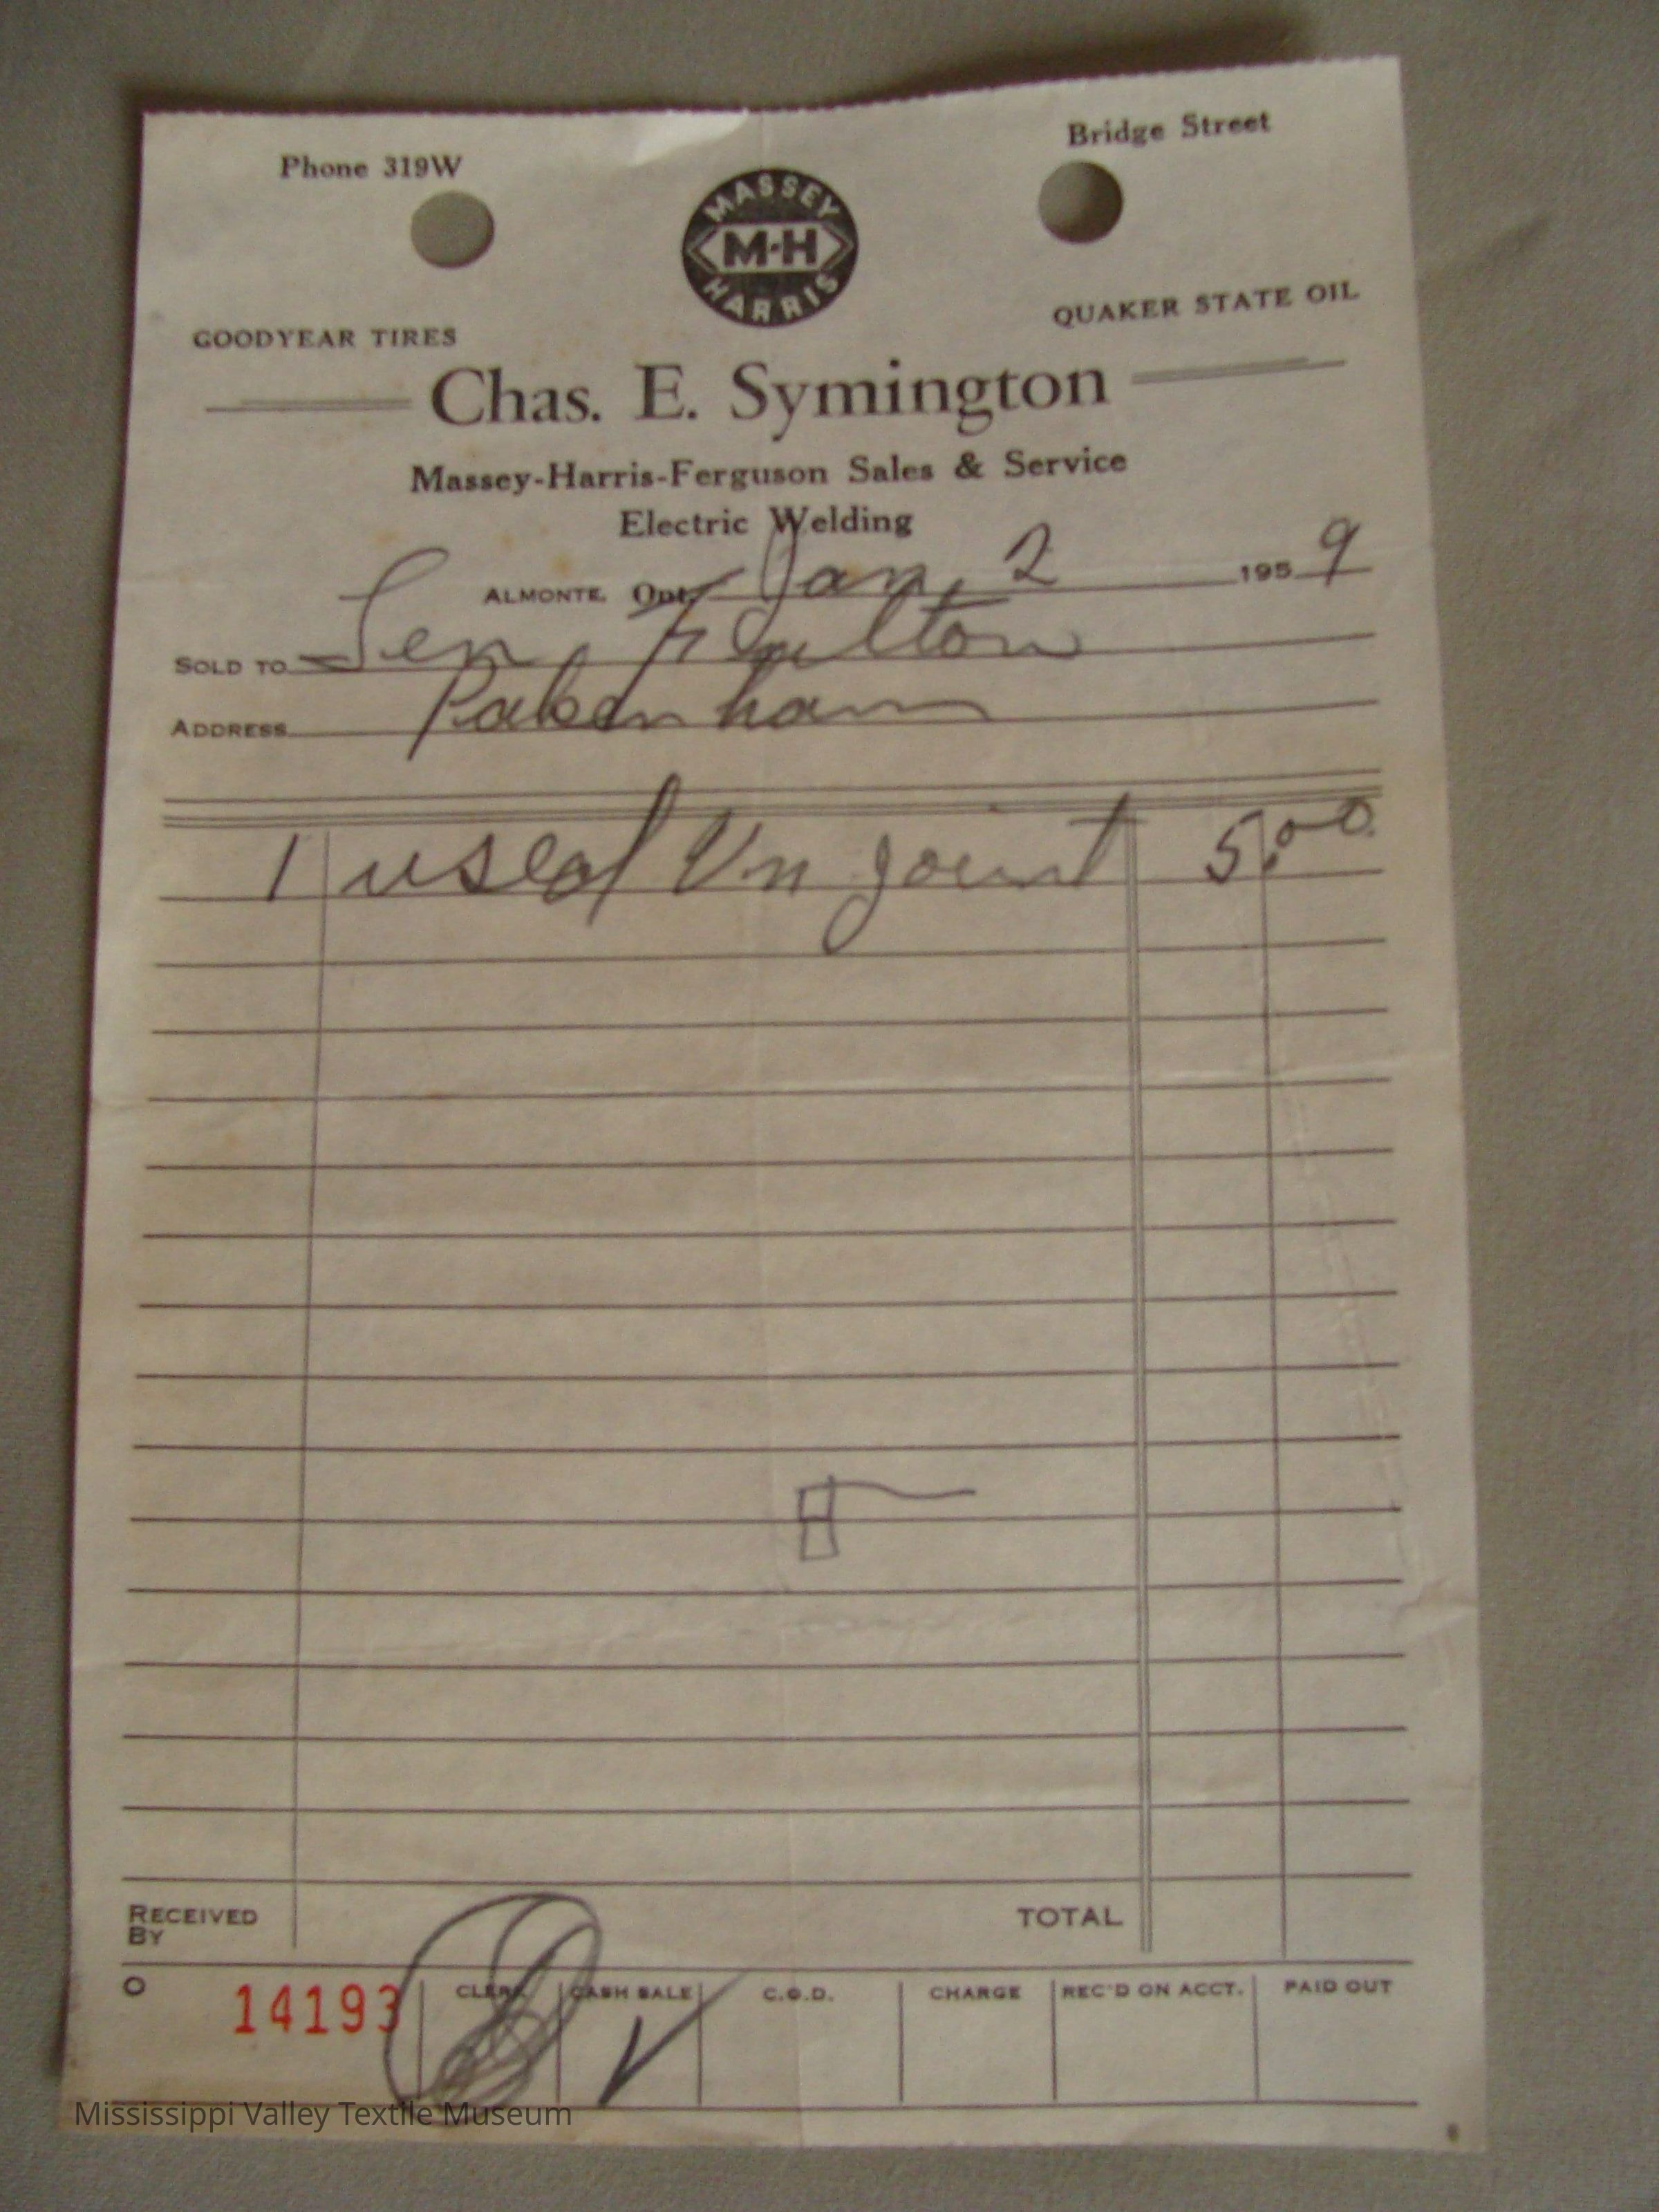 Phone 319W
Bridge Street
MASSEY
M-H
HARRIS
GOODYEAR TIRES
QUAKER STATE OIL
Chas. E. Symington
Massey-Harris-Ferguson Sales & Service
Electric Welding
ALMONTE, Ont. Jan. 2 1959
SOLD TO Len. Fulton
ADDRESS Pakenham
1 used Un joint 5.00
RECEIVED BY
TOTAL
14193 CLERK CASH SALE C.O.D. CHARGE REC'D ON ACCT. PAID OUT
Mississippi Valley Textile Museum